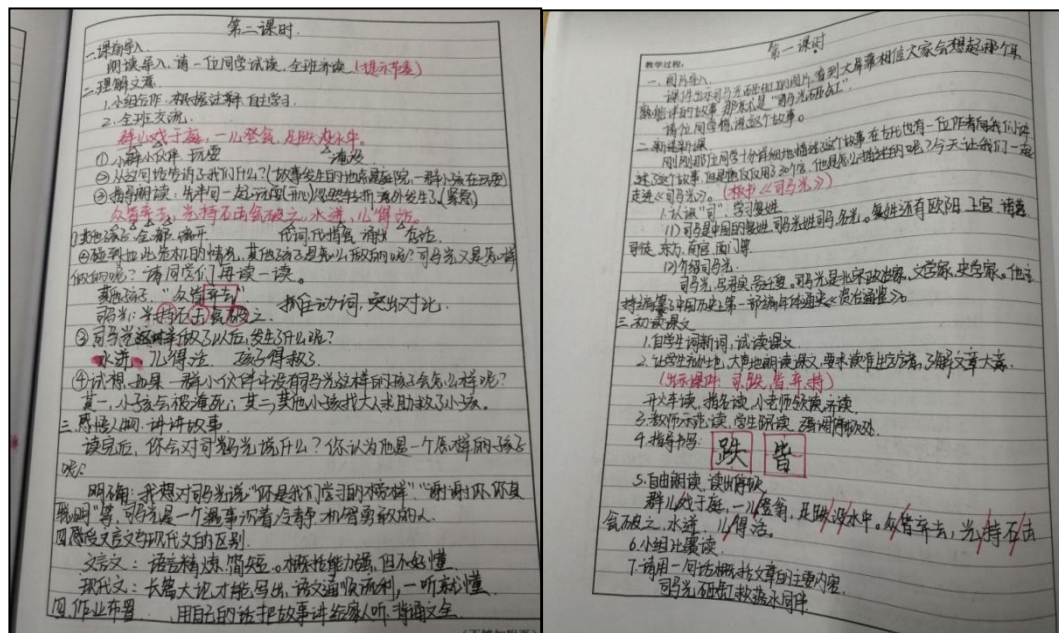 第二课时
一.课前导入.
朗读导入,请一位同学试读,全班齐读(提示节奏)
二.理解文意.
1.小组合作:根据注释,自主学习.
2.全班交流.
群儿戏于庭,一儿登瓮,足跌没水中。
①小群小伙伴 玩耍 淹没
②从这句话告诉了我们什么?(故事发生的地点是庭院,一群小孩在玩耍)
③指导朗读:先和同一起玩耍(开心)忽然转折,意外发生了.(紧急)
众皆弃去,光持石击瓮破之,水迸,儿得活。
其他孩子 全,都 离开 代词,代指瓮 涌出 存活.
②碰到如此危机的情况,其他孩子是怎么做的呢?司马光又是怎样
做的呢?请同学们再读一读.
其他孩子:“众皆弃去”
司马光:光持石击瓮破之. 抓住动词,突出对比.
③司马光这样做了以后,发生了什么呢?
水迸,儿得活. 孩子得救了.
④试想,如果一群小伙伴中没有司马光这样的孩子会怎么样呢?
其一,小孩会被淹死;其二,其他小孩找大人求助救了小孩。
三.感悟人物,讲讲故事.
读完后,你会对司马光说什么?你认为他是一个怎样的孩子
呢?
明确:我想对司马光说“你是我们学习的榜样”“谢谢你,你真
聪明”等,司马光是一个遇事沉着冷静、机智勇敢的人.
四.感受文言文与现代文的区别.
文言文:语言精炼,简短。概括能力强,但不好懂.
现代文:长篇大论才能写出,语文通顺流利,一听就懂.
四.作业布置 用自己的话把故事讲给家人听,背诵文全.
第一课时
教学过程:
一、图片导入.
课件出示司马光砸缸的图片,看到大屏幕相信大家会想起那个耳
熟能详的故事 那就是“司马光砸缸”
请位同学想说这个故事。
二.新课新课
刚刚那位同学十分详细地描述了这个故事,在古代也有一位作者向我们讲
述了这个故事,但是他仅仅用了30个字,他是怎么描述的呢?今天让我们一起
走进《司马光》。(板书《司马光》)
1.认识“司”,学习复姓
(1)司马是中国的复姓,司马光姓司马,名光。复姓还有欧阳、上官、诸葛、
司徒、东方、南宫、西门等.
(2)介绍司马光.
司马光,字君实,号迂叟。司马光是北宋政治家、文学家、史学家。他主
持编纂了中国历史上第一部编年体通史《资治通鉴》。
三.初读课文
1.自学生词新词,试读课文.
2.让学生放开地,大声地朗读课文,要求读准生字字音,了解文章大意.
(出示课件:司、跌、皆、弃、持)
开火车读,指名读,小老师领读,齐读.
3.教师示范读,学生跟读,强调停顿处.
4.指导书写: 跌 皆
5.自由朗读,读出停顿
群儿/戏于庭,一儿/登瓮,足跌/没水中。众/皆弃去,光/持石/击
瓮/破之,水迸,儿/得活。
6.小组比赛读.
7.请用一句话概括文章的主要内容.
司马光砸缸救落水同伴.